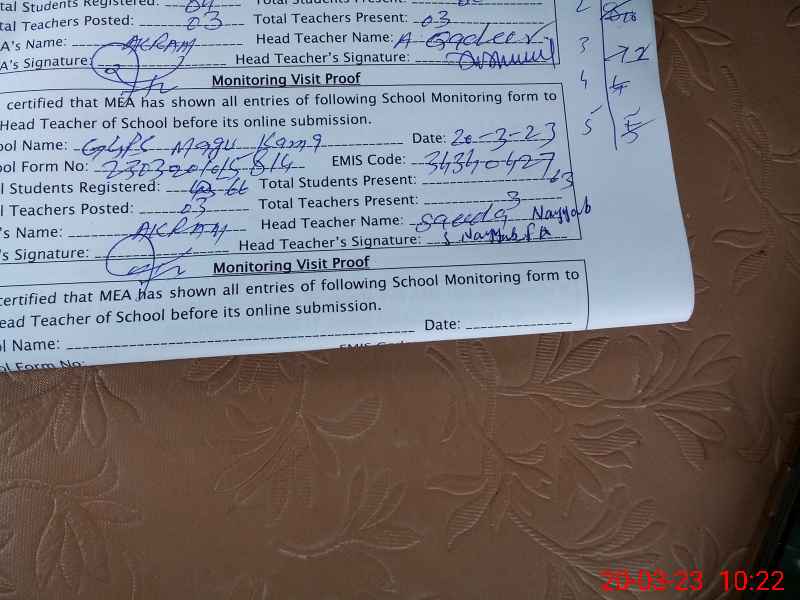 tal Students Registered: 04
tal Teachers Posted: 03 Total Teachers Present: 03
A's Name: AKRAM Head Teacher Name: A
A's Signature: Head Teacher's Signature:
Monitoring Visit Proof
certified that MEA has shown all entries of following School Monitoring form to
Head Teacher of School before its online submission.
ool Name: GGPS Kama Date: 20-3-23
ool Form No: EMIS Code: 34340427
l Students Registered: 66 Total Students Present: 63
l Teachers Posted: 03 Total Teachers Present: 3
's Name: AKRAM Head Teacher Name: Saeeda Nayyab
's Signature: Head Teacher's Signature: S Nayyab
Monitoring Visit Proof
certified that MEA has shown all entries of following School Monitoring form to
ead Teacher of School before its online submission.
ol Name: Date:
ol Form No:
2
3
4
5
20-03-23 10:22